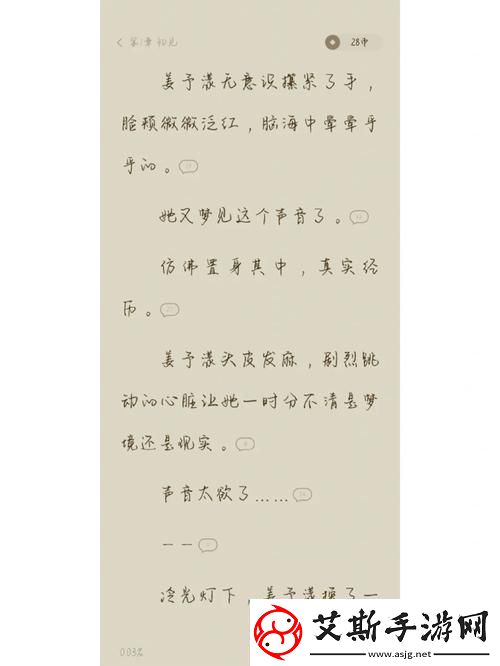 第1章 初见
28币
姜予漾无意识攥紧了手，
脸颊微微泛红，脑海中晕晕乎
乎的。
她又梦见这个声音了。
仿佛置身其中，真实经
历。
姜予漾头皮发麻，剧烈跳
动的心脏让她一时分不清是梦
境还是现实。
声音太欲了……
一一
冷光灯下，姜予漾换了一
0.03%
艾斯手游网
www.asjg.net